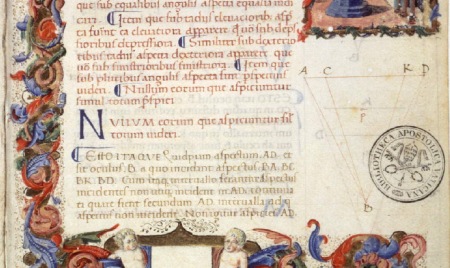 sub equalibus angulis aspecta equalia indi
cum. ¶ Item que sub radiis elevatioribus asp
ta fuerint ea elevatiora apparere que vero sub depres
sioribus depressiora. ¶ Similiter sub dexterio
ribus radiis aspecta dexteriora apparere que
vero sub sinistrioribus sinistriora. ¶ Item que
sub pluribus angulis aspecta sunt perspicatius
videri. ¶ Nullum eorum que aspiciuntur
simul totum perspici
NULLUM eorum que aspiciuntur sil
totum videri.
Esto itaque quidpiam aspectum AD. et
sit oculus B a quo incidant aspectus BA. BC
BK. BD. Cum itaque intervallo ferantur aspectus
incidentes non utique incident in AD. continua
te quare fient secundum AD intervalla
aspectus non incident. Non igitur aspicietur AD
A C K D
P
B
BIBLIOTHECA APOSTOLICA VATICANA